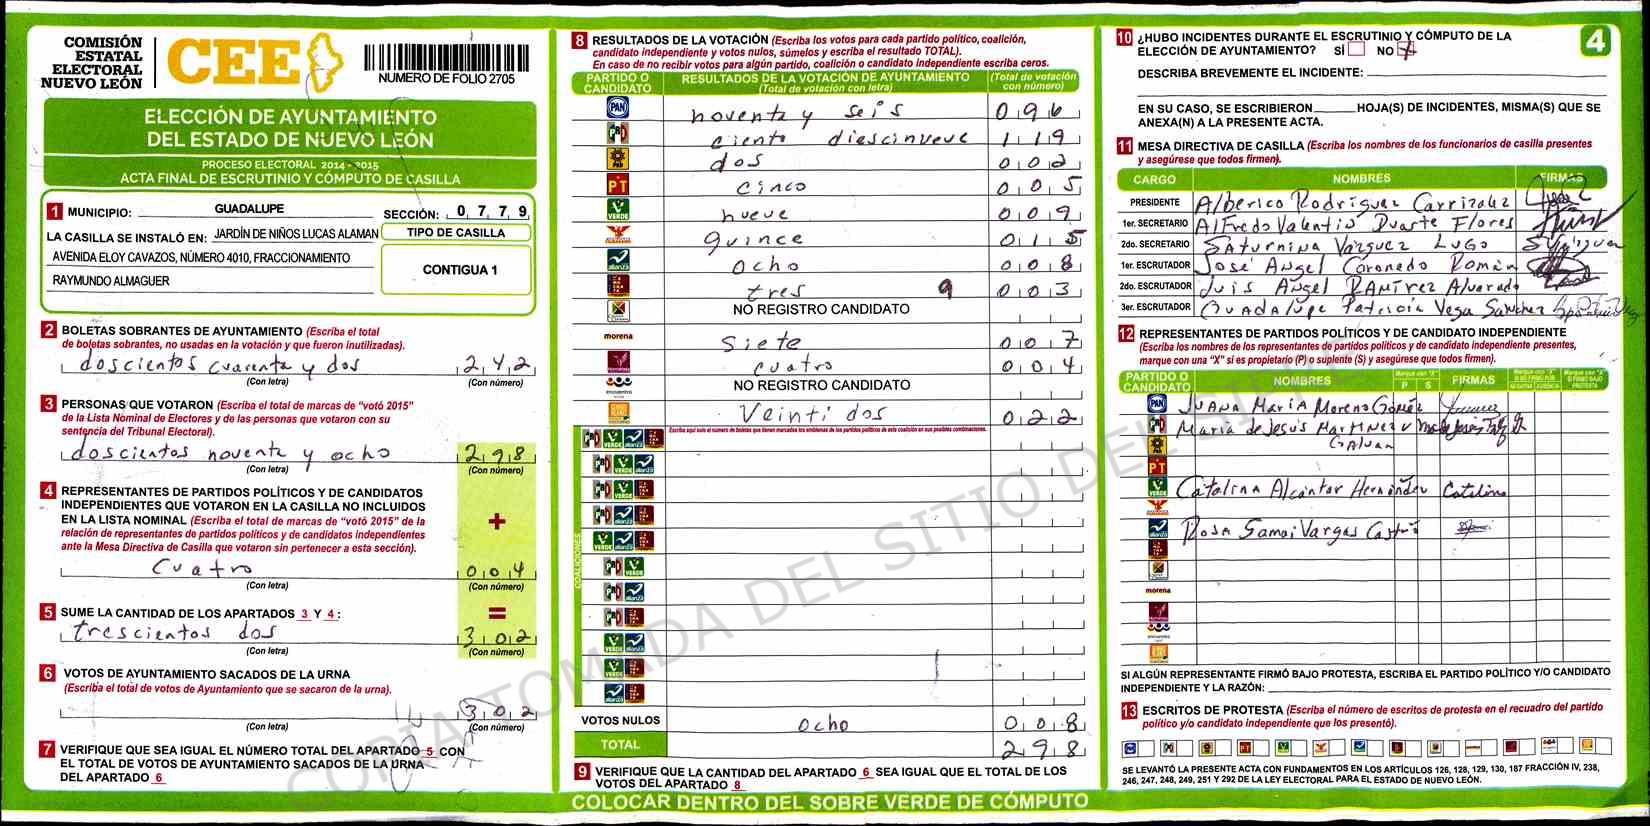 COMISIÓN
ESTATAL
ELECTORAL
NUEVO LEÓN
CEE
NUMERO DE FOLIO 2705
ELECCIÓN DE AYUNTAMIENTO
DEL ESTADO DE NUEVO LEÓN
PROCESO ELECTORAL 2014 - 2015
ACTA FINAL DE ESCRUTINIO Y CÓMPUTO DE CASILLA
1 MUNICIPIO: GUADALUPE SECCIÓN: 0 7 7 9
LA CASILLA SE INSTALÓ EN: JARDÍN DE NIÑOS LUCAS ALAMAN
AVENIDA ELOY CAVAZOS, NÚMERO 4010, FRACCIONAMIENTO
RAYMUNDO ALMAGUER
TIPO DE CASILLA
CONTIGUA 1
2 BOLETAS SOBRANTES DE AYUNTAMIENTO (Escriba el total
de boletas sobrantes, no usadas en la votación y que fueron inutilizadas).
doscientos cuarenta y dos 2 4 2
(Con letra) (Con número)
3 PERSONAS QUE VOTARON (Escriba el total de marcas de “votó 2015”
de la Lista Nominal de Electores y de las personas que votaron con su
sentencia del Tribunal Electoral).
doscientos noventa y ocho 2 9 8
(Con letra) (Con número)
4 REPRESENTANTES DE PARTIDOS POLÍTICOS Y DE CANDIDATOS
INDEPENDIENTES QUE VOTARON EN LA CASILLA NO INCLUIDOS
EN LA LISTA NOMINAL (Escriba el total de marcas de “votó 2015” de la
relación de representantes de partidos políticos y de candidatos independientes
ante la Mesa Directiva de Casilla que votaron sin pertenecer a esta sección).
+
Cuatro 0 0 4
(Con letra) (Con número)
5 SUME LA CANTIDAD DE LOS APARTADOS 3 Y 4 :
=
trescientos dos 3 0 2
(Con letra) (Con número)
6 VOTOS DE AYUNTAMIENTO SACADOS DE LA URNA
(Escriba el total de votos de Ayuntamiento que se sacaron de la urna).
3 0 2
(Con letra) (Con número)
7 VERIFIQUE QUE SEA IGUAL EL NÚMERO TOTAL DEL APARTADO 5 CON
EL TOTAL DE VOTOS DE AYUNTAMIENTO SACADOS DE LA URNA
DEL APARTADO 6
8 RESULTADOS DE LA VOTACIÓN (Escriba los votos para cada partido político, coalición,
candidato independiente y votos nulos, súmelos y escriba el resultado TOTAL).
En caso de no recibir votos para algún partido, coalición o candidato independiente escriba ceros.
PARTIDO O
CANDIDATO
RESULTADOS DE LA VOTACIÓN DE AYUNTAMIENTO
(Total de votación con letra)
(Total de votación
con número)
PAN noventa y seis 0 9 6
PRD ciento diescinueve 1 1 9
PRD dos 0 0 2
PT cinco 0 0 5
VERDE nueve 0 0 9
quince 0 1 5
alianza ocho 0 0 8
tres 9 0 0 3
NO REGISTRO CANDIDATO
morena Siete 0 0 7
cuatro 0 0 4
NO REGISTRO CANDIDATO
Veinti dos 0 2 2
Escriba aquí solo el número de boletas que tienen marcados los emblemas de los partidos políticos de esta coalición en sus posibles combinaciones.
COALICIONES
VOTOS NULOS ocho 0 0 8
TOTAL 2 9 8
9 VERIFIQUE QUE LA CANTIDAD DEL APARTADO 6 SEA IGUAL QUE EL TOTAL DE LOS
VOTOS DEL APARTADO 8
COLOCAR DENTRO DEL SOBRE VERDE DE CÓMPUTO
10 ¿HUBO INCIDENTES DURANTE EL ESCRUTINIO Y CÓMPUTO DE LA
ELECCIÓN DE AYUNTAMIENTO? SÍ NO X
4
DESCRIBA BREVEMENTE EL INCIDENTE:
EN SU CASO, SE ESCRIBIERON HOJA(S) DE INCIDENTES, MISMA(S) QUE SE
ANEXA(N) A LA PRESENTE ACTA.
11 MESA DIRECTIVA DE CASILLA (Escriba los nombres de los funcionarios de casilla presentes
y asegúrese que todos firmen).
CARGO NOMBRES FIRMAS
PRESIDENTE Alberico Rodríguez Carrizalez
1er. SECRETARIO Alfredo Valentio Duarte Flores
2do. SECRETARIO Saturnina Vázquez Lugo
1er. ESCRUTADOR José Angel Coronado Román
2do. ESCRUTADOR Luis Ángel Ramírez Alvarado
3er. ESCRUTADOR Guadalupe Patricia Vega Sánchez
12 REPRESENTANTES DE PARTIDOS POLÍTICOS Y DE CANDIDATO INDEPENDIENTE
(Escriba los nombres de los representantes de partidos políticos y de candidato independiente presentes,
marque con una “X” si es propietario (P) o suplente (S) y asegúrese que todos firmen).
PARTIDO O
CANDIDATO
NOMBRES P S FIRMAS
PAN Juana María Moreno Gómez
María de Jesús Martínez
Galvan
PT
VERDE Catalina Alcántar Hernández Catalina
alianza Rosa Samai Vargas Castro
morena
SI ALGÚN REPRESENTANTE FIRMÓ BAJO PROTESTA, ESCRIBA EL PARTIDO POLÍTICO Y/O CANDIDATO
INDEPENDIENTE Y LA RAZÓN:
13 ESCRITOS DE PROTESTA (Escriba el número de escritos de protesta en el recuadro del partido
político y/o candidato independiente que los presentó).
SE LEVANTÓ LA PRESENTE ACTA CON FUNDAMENTOS EN LOS ARTÍCULOS 126, 128, 129, 130, 187 FRACCIÓN IV, 238,
246, 247, 248, 249, 251 Y 292 DE LA LEY ELECTORAL PARA EL ESTADO DE NUEVO LEÓN.
COPIA TOMADA DEL SITIO DEL